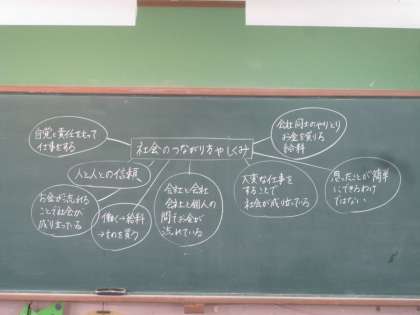 社会のつながり方やしくみ
自覚と責任をもって
仕事をする
人と人との信頼
お金が流れる
ことで社会が
成り立っている
働く→給料
→ものを買う
会社と会社
会社と個人の
間でお金が
流れている
大変な仕事を
することで
社会が成り立っている
会社同士のやりとり
お金を借りる
給料
思ったことが簡単
にできるわけ
ではない